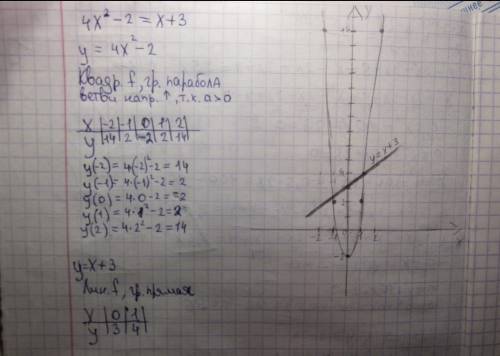 4x² - 2 = x + 3
y = 4x² - 2
Квадр. f, гр. парабола
ветви напр. ↑, т.к. a > 0
x | -2 | -1 | 0 | 1 | 2
y | 14 | 2 | -2 | 2 | 14
y(-2) = 4(-2)² - 2 = 14
y(-1) = 4·(-1)² - 2 = 2
y(0) = 4·0 - 2 = -2
y(1) = 4·1² - 2 = 2
y(2) = 4·2² - 2 = 14
y = x + 3
Лин. f, гр. прямая
x | 0 | 1
y | 3 | 4
y
y = x + 3
4
-2 -1 1 2
x
-2